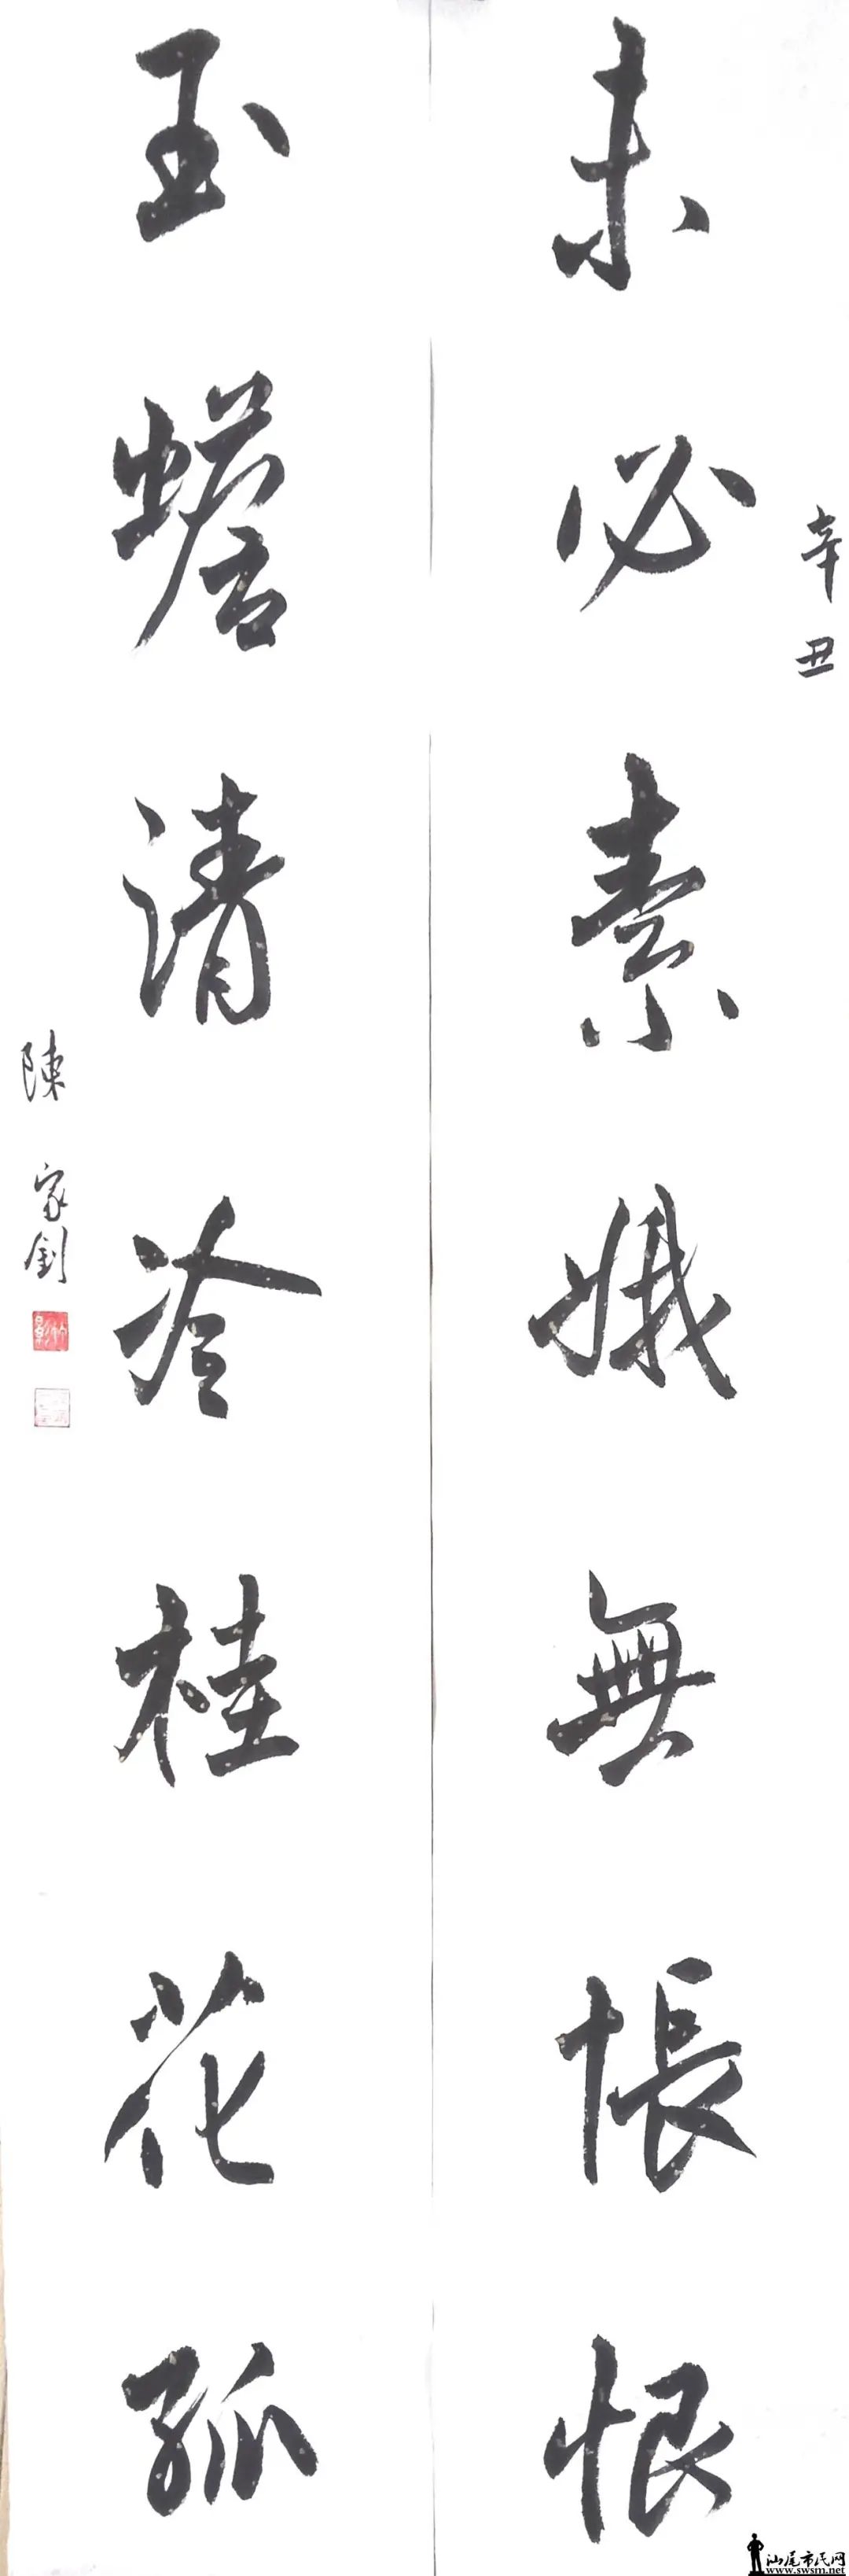 辛丑
未必素娥無悵恨
玉蟾清冷桂花孤
陳家釗
汕尾市民网
www.swsm.net